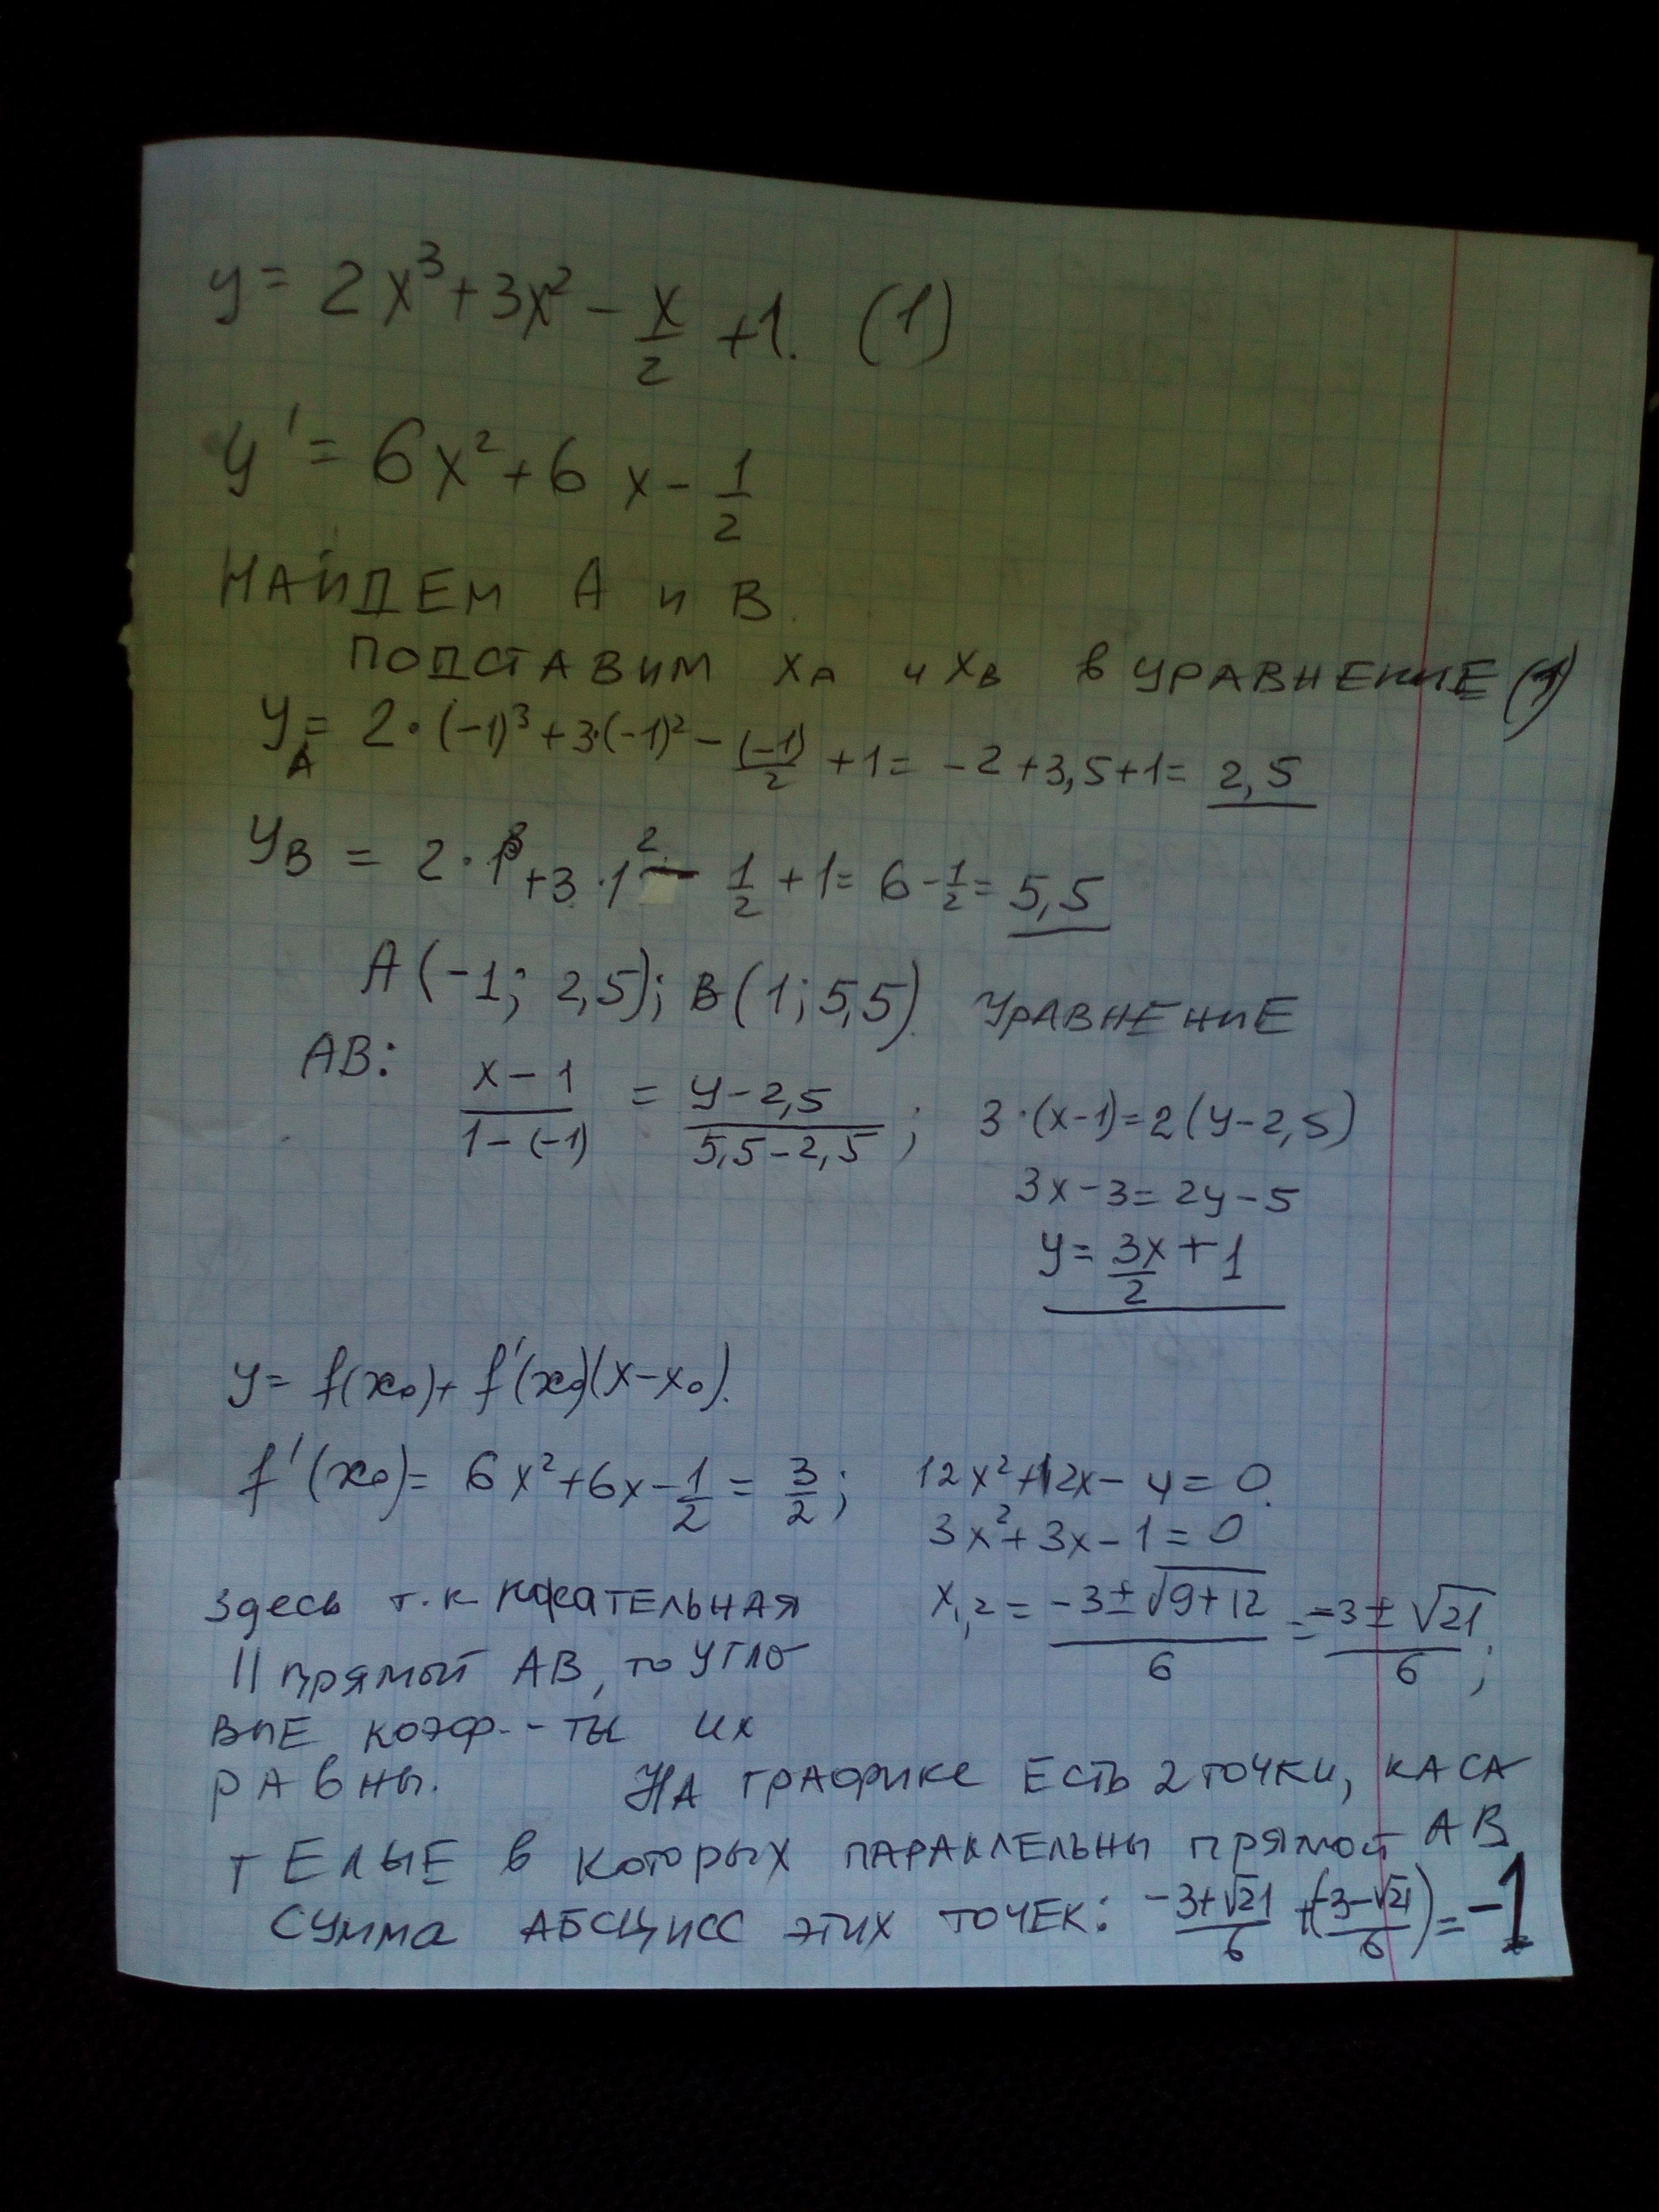 y = 2x³ + 3x² - x/2 + 1. (1)
y' = 6x² + 6x - 1/2
НАЙДЕМ А и В.
ПОДСТАВИМ xA и xB в УРАВНЕНИЕ (1)
yA = 2·(-1)³ + 3·(-1)² - (-1)/2 + 1 = -2 + 3,5 + 1 = 2,5
yB = 2·1³ + 3·1² - 1/2 + 1 = 6 - 1/2 = 5,5
A(-1; 2,5); B(1; 5,5). УРАВНЕНИЕ
AB: (x-1)/(1-(-1)) = (y-2,5)/(5,5-2,5); 3·(x-1) = 2(y-2,5)
3x - 3 = 2y - 5
y = 3x/2 + 1
y = f(x₀) + f'(x₀)(x-x₀).
f'(x₀) = 6x² + 6x - 1/2 = 3/2; 12x² + 12x - 4 = 0.
3x² + 3x - 1 = 0
x₁,₂ = (-3 ± √(9+12))/6 = (-3 ± √21)/6;
Здесь т.к касАТЕЛЬНАЯ
|| прямой АВ, то УГЛО
ВЫЕ КОЭФ--ТЫ их
РАВНЫ.
НА ГРАФИКЕ ЕСТЬ 2 ТОЧКИ, КАСА
ТЕЛЫЕ в которых ПАРАЛЛЕЛЬНЫ прямой АВ
Сумма АБСЦИСС этих ТОЧЕК: (-3+√21)/6 + ((-3-√21)/6) = -1